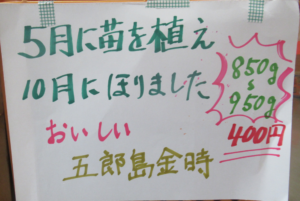 5月に苗を植え
10月にほりました
おいしい
五郎島金時
850g
〜
950g
400円